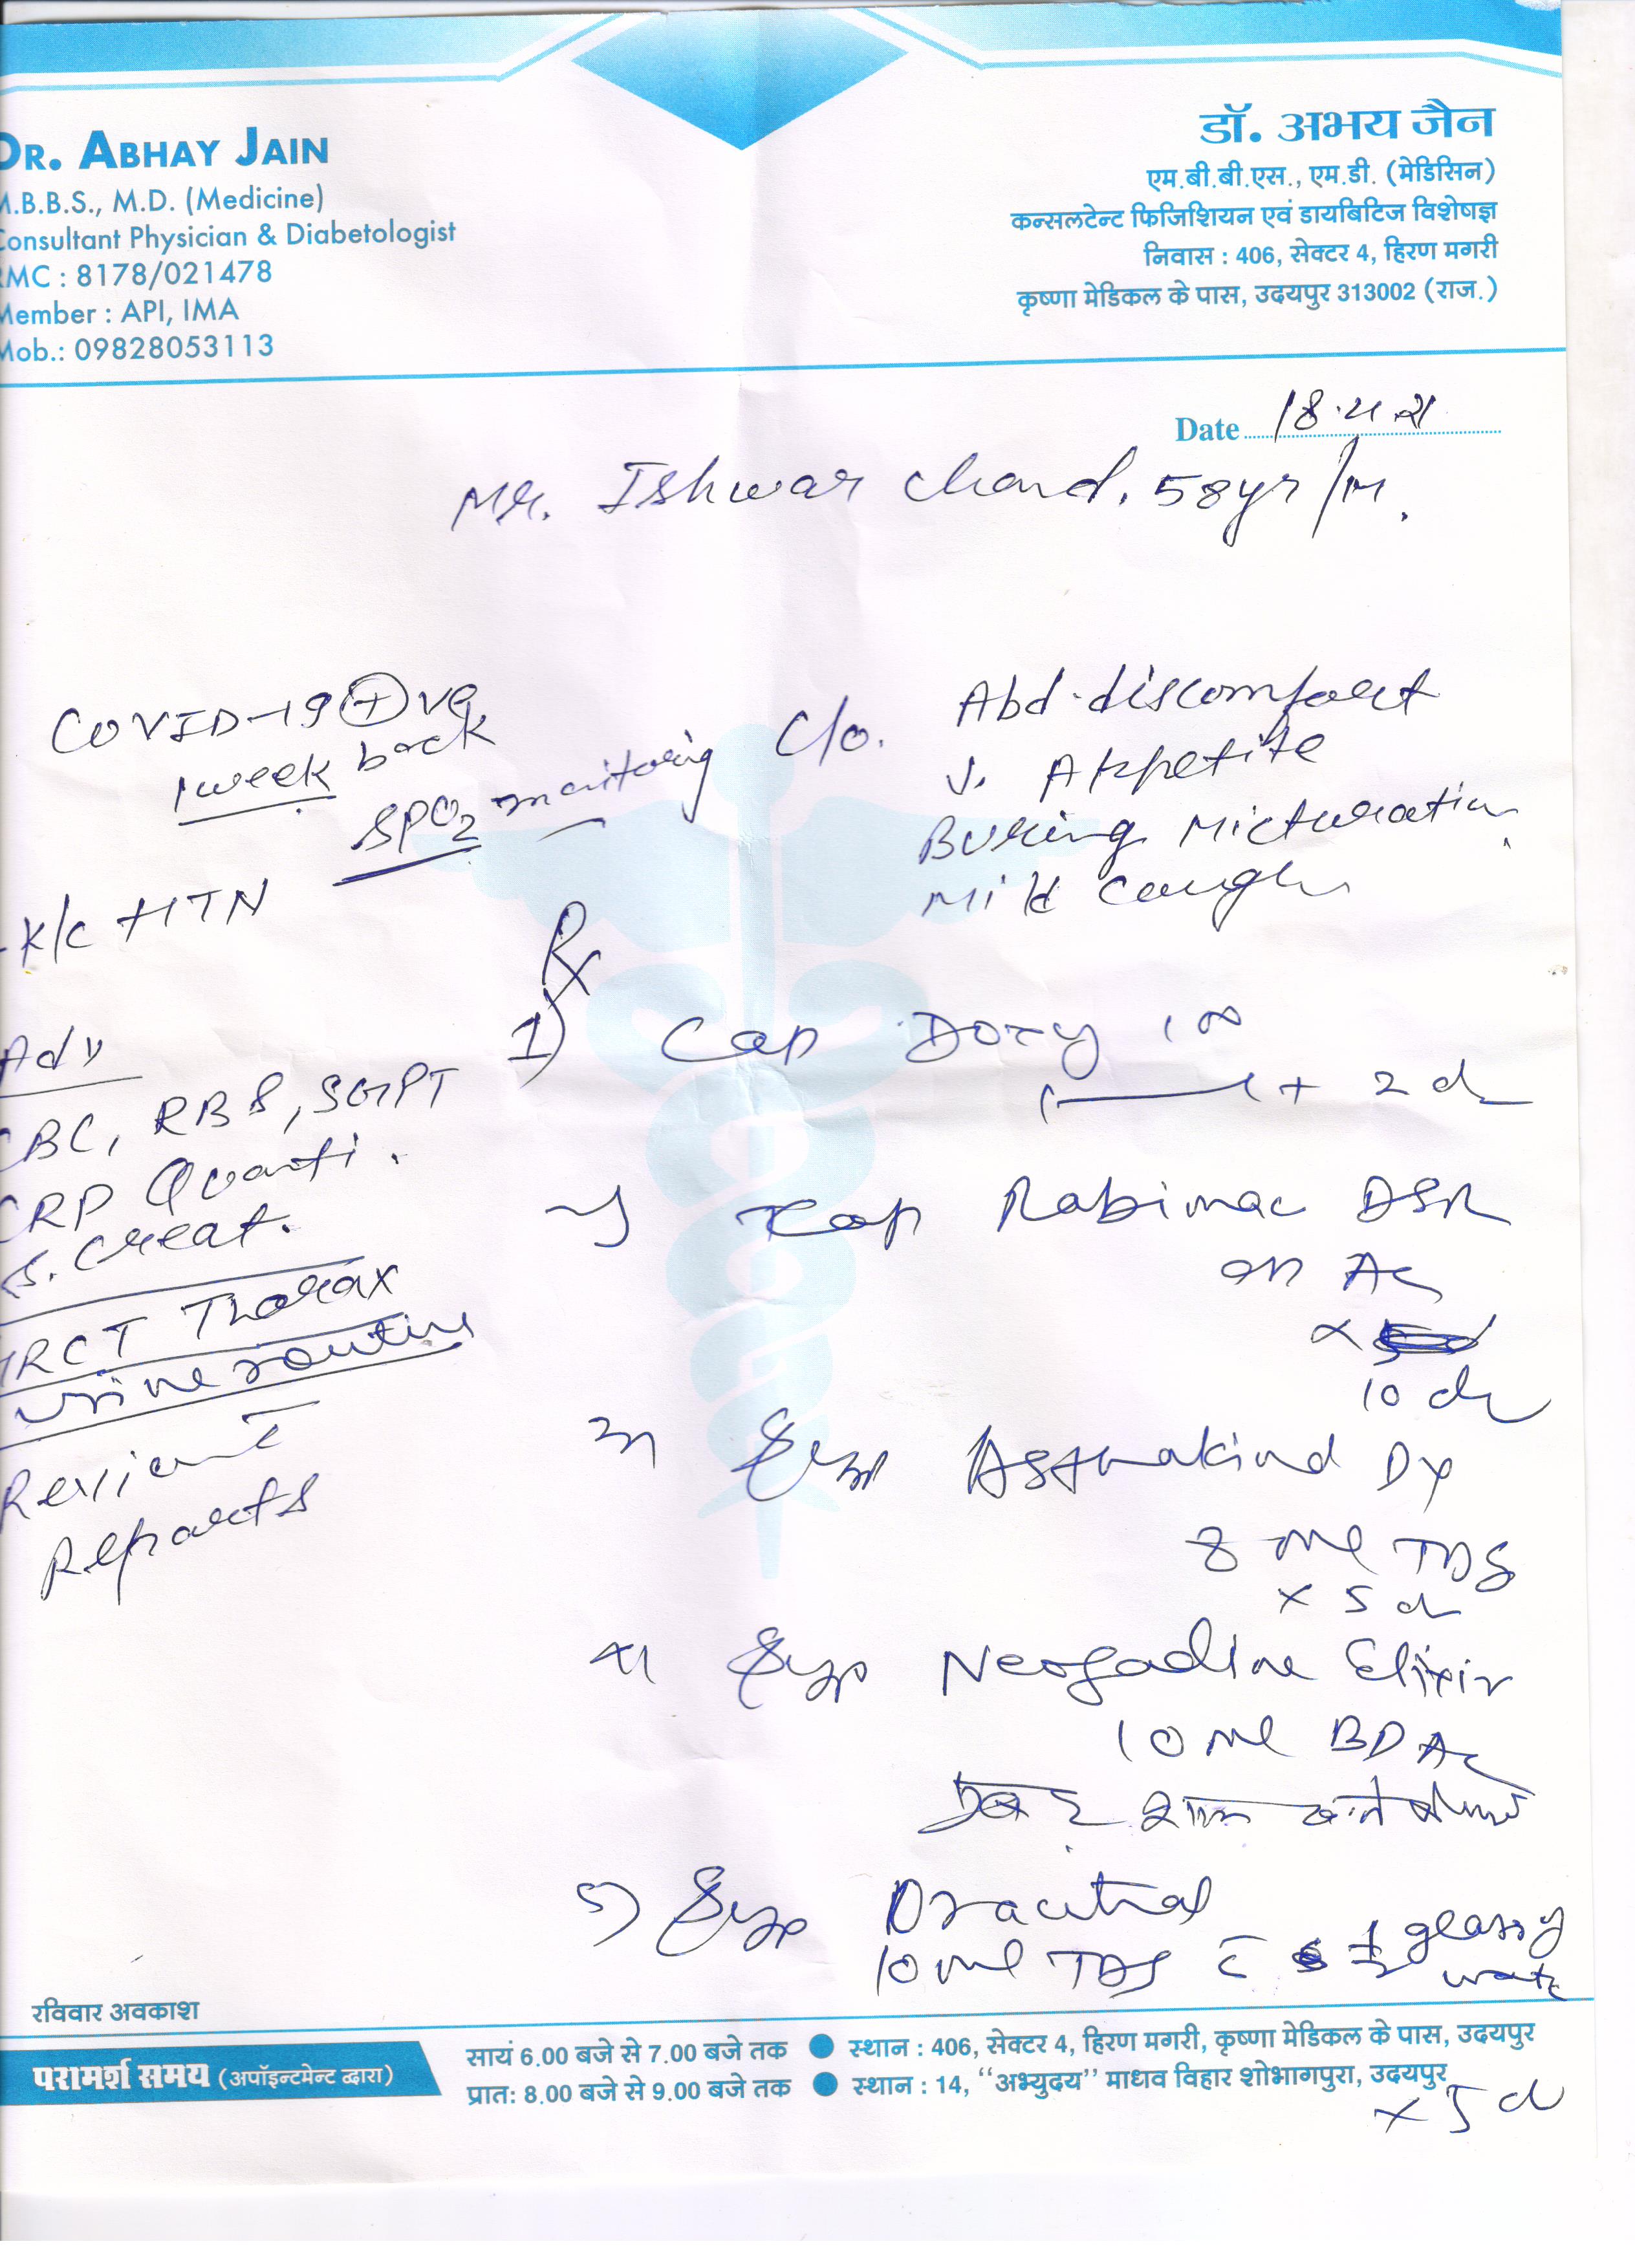 DR. ABHAY JAIN
M.B.B.S., M.D. (Medicine)
Consultant Physician & Diabetologist
RMC : 8178/021478
Member : API, IMA
Mob.: 09828053113
डॉ. अभय जैन
एम.बी.बी.एस., एम.डी. (मेडिसिन)
कन्सलटेन्ट फिजिशियन एवं डायबिटिज विशेषज्ञ
निवास : 406, सेक्टर 4, हिरण मगरी
कृष्णा मेडिकल के पास, उदयपुर 313002 (राज.)
Date 18.4.21
Mr. Ishwar Chand. 58yr/M.
COVID-19 +ve
1 week back
SPO2 monitoring
K/c HTN
C/o. Abd. discomfort
↓. Appetite
Burning Micturation
Mild Cough
Adv
CBC, RBS, SGPT
CRP Quanti.
S. Creat.
HRCT Thorax
Urine routine
Review
Reports
Rx
1) Cap Doxy 100
1——1 + 2 d
2) Cap Rabimac DSR
on AC
x
10 d
3) Syp Asthakind Dx
8 ml TDS
x 5 d
4) Syp Neogadine Elixir
10 ml BD AC
5) Syp
10 ml TDS c̄ 1/2 glass
water
x 5 d
रविवार अवकाश
परामर्श समय (अपॉइन्टमेन्ट द्वारा)
सायं 6.00 बजे से 7.00 बजे तक ● स्थान : 406, सेक्टर 4, हिरण मगरी, कृष्णा मेडिकल के पास, उदयपुर
प्रात: 8.00 बजे से 9.00 बजे तक ● स्थान : 14, "अभ्युदय" माधव विहार शोभागपुरा, उदयपुर